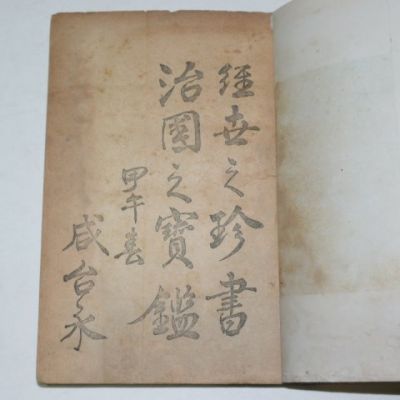 經世之珍書
治國之寶鑑
甲午春
咸台永